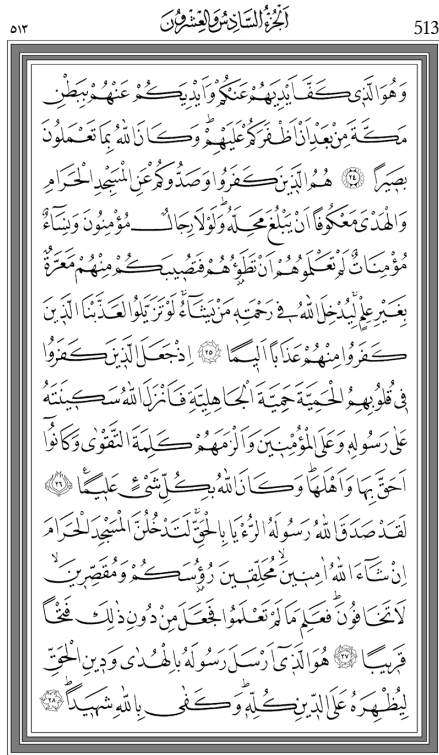 513 اَلْجُزْءُ السَّادِسُ وَالْعِشْرُونَ ٥١٣
وَهُوَ الَّذ۪ي كَفَّ اَيْدِيَهُمْ عَنْكُمْ وَاَيْدِيَكُمْ عَنْهُمْ بِبَطْنِ
مَكَّةَ مِنْ بَعْدِ اَنْ اَظْفَرَكُمْ عَلَيْهِمْۜ وَكَانَ اللّٰهُ بِمَا تَعْمَلُونَ
بَص۪يرًا ﴿٢٤﴾ هُمُ الَّذ۪ينَ كَفَرُوا وَصَدُّوكُمْ عَنِ الْمَسْجِدِ الْحَرَامِ
وَالْهَدْيَ مَعْكُوفًا اَنْ يَبْلُغَ مَحِلَّهُۜ وَلَوْلَا رِجَالٌ مُؤْمِنُونَ وَنِسَٓاءٌ
مُؤْمِنَاتٌ لَمْ تَعْلَمُوهُمْ اَنْ تَطَؤُ۫هُمْ فَتُص۪يبَكُمْ مِنْهُمْ مَعَرَّةٌ
بِغَيْرِ عِلْمٍۚ لِيُدْخِلَ اللّٰهُ ف۪ي رَحْمَتِه۪ مَنْ يَشَٓاءُۚ لَوْ تَزَيَّلُوا لَعَذَّبْنَا الَّذ۪ينَ
كَفَرُوا مِنْهُمْ عَذَابًا اَل۪يمًا ﴿٢٥﴾ اِذْ جَعَلَ الَّذ۪ينَ كَفَرُوا
ف۪ي قُلُوبِهِمُ الْحَمِيَّةَ حَمِيَّةَ الْجَاهِلِيَّةِ فَاَنْزَلَ اللّٰهُ سَك۪ينَتَهُ
عَلٰى رَسُولِه۪ وَعَلَى الْمُؤْمِن۪ينَ وَاَلْزَمَهُمْ كَلِمَةَ التَّقْوٰى وَكَانُٓوا
اَحَقَّ بِهَا وَاَهْلَهَاۜ وَكَانَ اللّٰهُ بِكُلِّ شَيْءٍ عَل۪يمًا۟ ﴿٢٦﴾
لَقَدْ صَدَقَ اللّٰهُ رَسُولَهُ الرُّءْيَا بِالْحَقِّۚ لَتَدْخُلُنَّ الْمَسْجِدَ الْحَرَامَ
اِنْ شَٓاءَ اللّٰهُ اٰمِن۪ينَۙ مُحَلِّق۪ينَ رُؤُ۫سَكُمْ وَمُقَصِّر۪ينَۙ
لَا تَخَافُونَۜ فَعَلِمَ مَا لَمْ تَعْلَمُوا فَجَعَلَ مِنْ دُونِ ذٰلِكَ فَتْحًا
قَر۪يبًا ﴿٢٧﴾ هُوَ الَّذ۪ٓي اَرْسَلَ رَسُولَهُ بِالْهُدٰى وَد۪ينِ الْحَقِّ
لِيُظْهِرَهُ عَلَى الدّ۪ينِ كُلِّه۪ۜ وَكَفٰى بِاللّٰهِ شَه۪يدًاۜ ﴿٢٨﴾